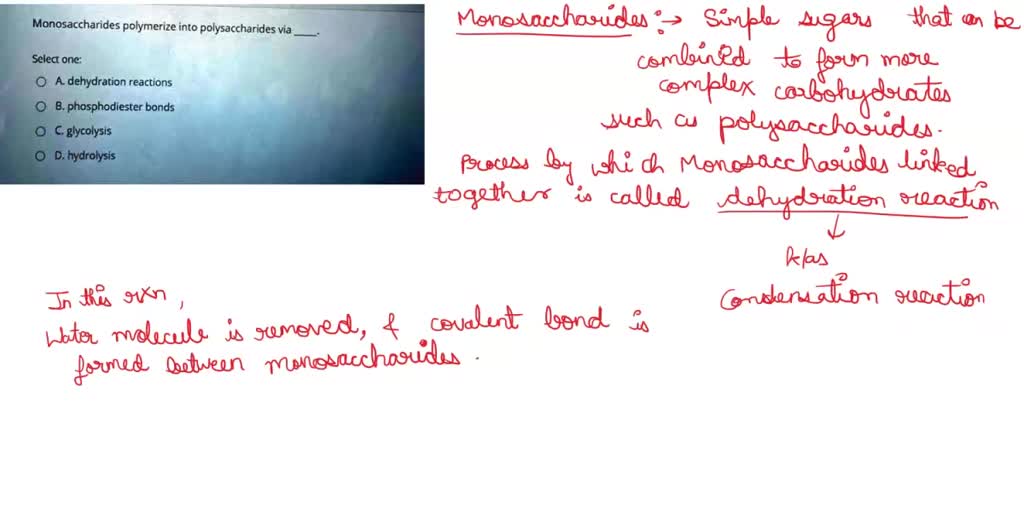 Monosaccharides polymerize into polysaccharides via ____.
Select one:
A. dehydration reactions
B. phosphodiester bonds
C. glycolysis
D. hydrolysis
Monosaccharides :→ Simple sugars that can be
combined to form more
complex carbohydrates
such as polysaccharides.
Process by which Monosaccharides linked
together is called dehydration reaction
↓
k/as
Condensation reaction
In this rxn,
Water molecule is removed, & covalent bond is
formed between monosaccharides.